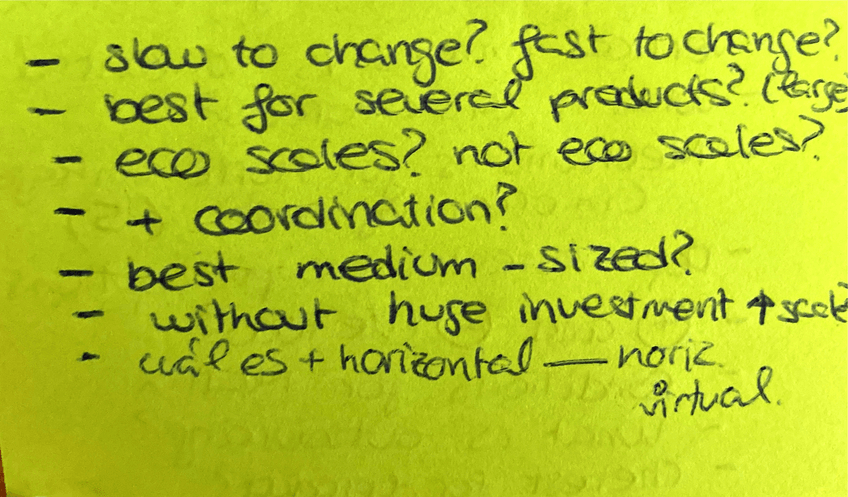 - slow to change? fast to change?
- best for several products? (large
- eco scales? not eco scales?
- + coordination?
- best medium-sized?
- without huge investment ↑ scale?
- cuál es + horizontal — horiz.
virtual.